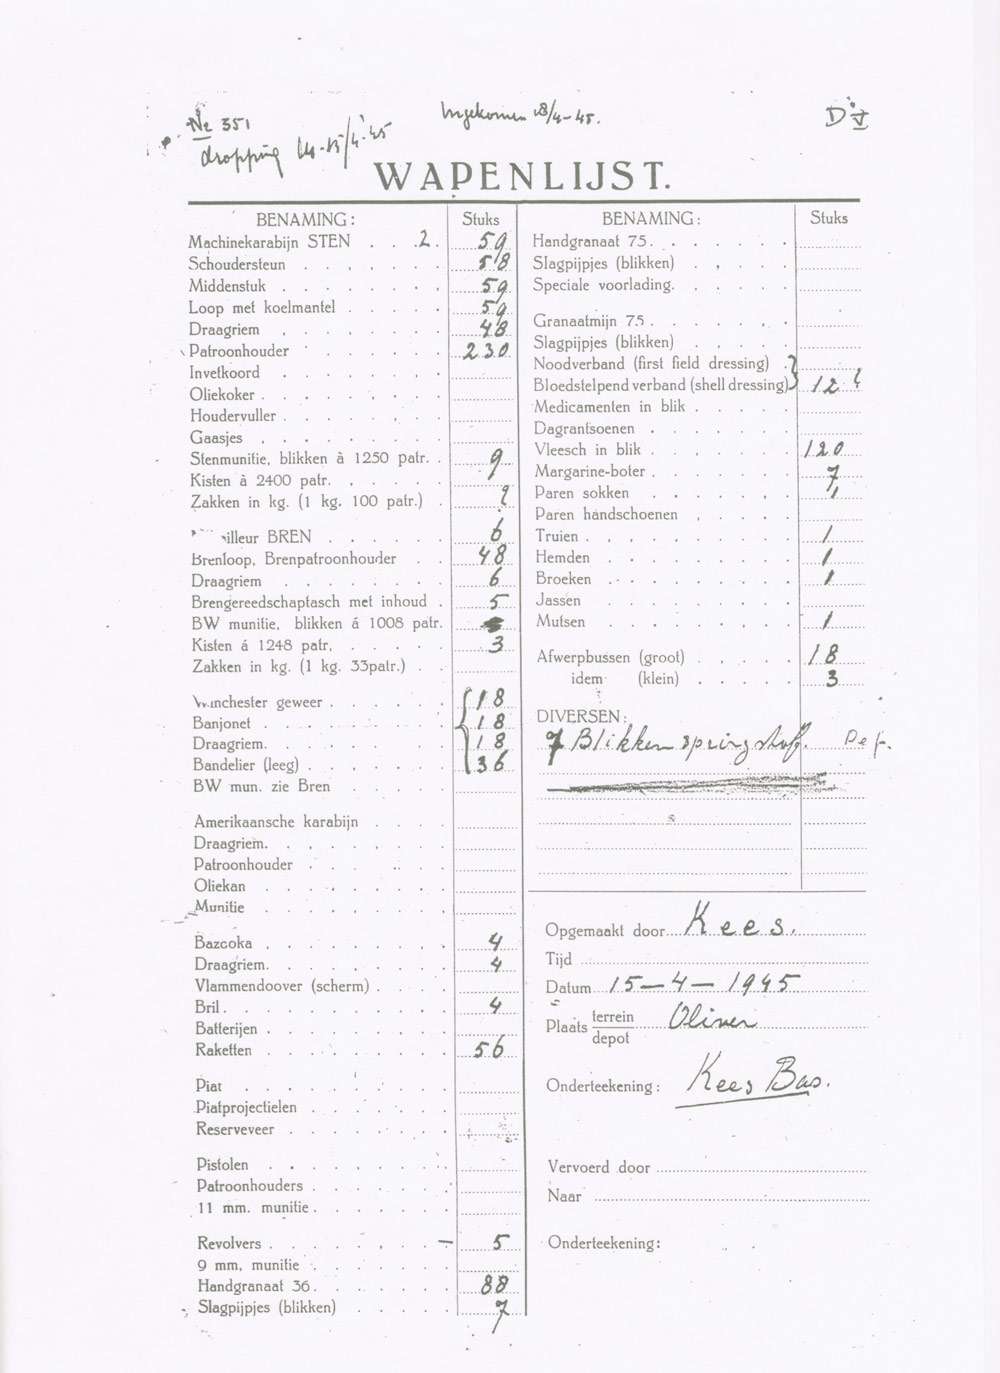 No 351
dropping 14-15/4-'45
Ingekomen 18/4-45.
D V
WAPENLIJST.
BENAMING: Stuks
Machinekarabijn STEN . . . 2. 59
Schoudersteun 58
Middenstuk 59
Loop met koelmantel 59
Draagriem 48
Patroonhouder 230
Invetkoord
Oliekoker
Houdervuller
Gaasjes
Stenmunitie, blikken à 1250 patr. 9
Kisten à 2400 patr.
Zakken in kg. (1 kg. 100 patr.) ?
illeur BREN 6
Brenloop, Brenpatroonhouder 48
Draagriem 6
Brengereedschaptasch met inhoud 5
BW munitie, blikken á 1008 patr.
Kisten á 1248 patr. 3
Zakken in kg. (1 kg. 33patr.)
Winchester geweer 18
Banjonet 18
Draagriem. 18
Bandelier (leeg) 36
BW mun. zie Bren
Amerikaansche karabijn
Draagriem.
Patroonhouder
Oliekan
Munitie
Bazooka 4
Draagriem. 4
Vlammendoover (scherm)
Bril 4
Batterijen
Raketten 56
Piat
Piatprojectielen
Reserveveer
Pistolen
Patroonhouders
11 mm. munitie
Revolvers 5
9 mm. munitie
Handgranaat 36 88
Slagpijpjes (blikken) 7
BENAMING: Stuks
Handgranaat 75
Slagpijpjes (blikken)
Speciale voorlading.
Granaatmijn 75
Slagpijpjes (blikken)
Noodverband (first field dressing)
Bloedstelpend verband (shell dressing) 12
Medicamenten in blik
Dagrantsoenen
Vleesch in blik 120
Margarine-boter 7
Paren sokken 1
Paren handschoenen
Truien 1
Hemden 1
Broeken 1
Jassen
Mutsen 1
Afwerpbussen (groot) 18
idem (klein) 3
DIVERSEN:
7 Blikken springstof.
Opgemaakt door Kees.
Tijd
Datum 15-4-1945
Plaats terrein Oliver
depot
Onderteekening: Kees Bas.
Vervoerd door
Naar
Onderteekening: